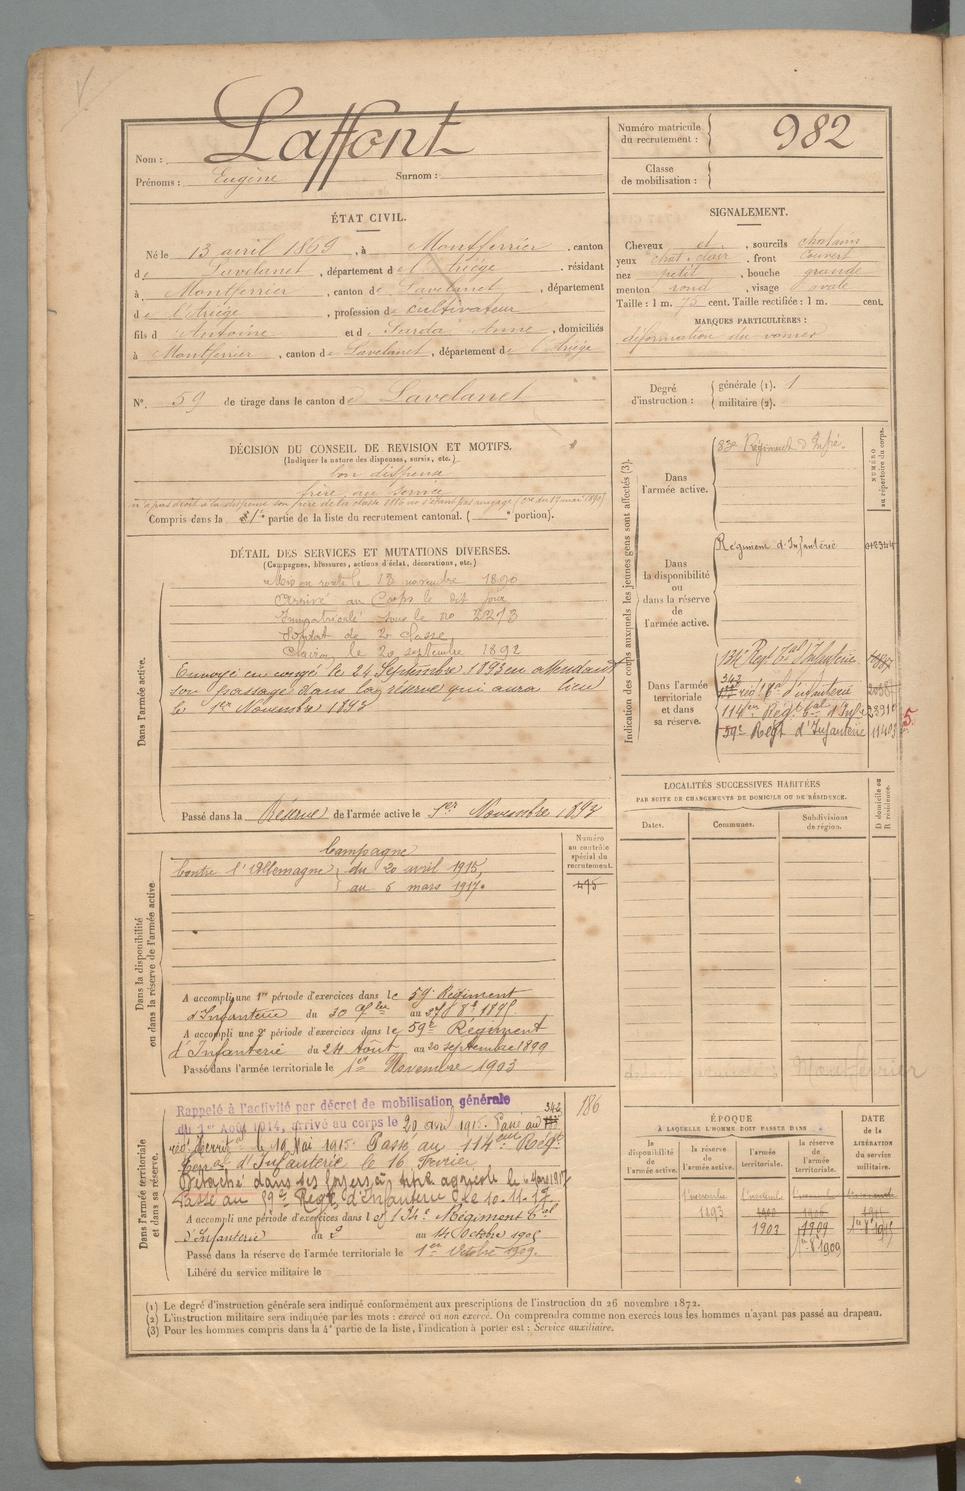 Nom : Laffont
Prénoms : Eugène Surnom :
Numéro matricule du recrutement : 982
Classe de mobilisation :
ÉTAT CIVIL.
Né le 13 avril 1869, à Montferrier, canton
de Lavelanet, département de l'Ariège, résidant
à Montferrier, canton de Lavelanet, département
de l'Ariège, profession de cultivateur
fils d' Antoine et de Sarda Anne, domiciliés
à Montferrier, canton de Lavelanet, département de l'Ariège
N°. 59 de tirage dans le canton de Lavelanet
DÉCISION DU CONSEIL DE REVISION ET MOTIFS.
(Indiquer la nature des dispenses, sursis, etc.)
bon dispensé
frère au service
n'a pas droit à la dispense son frère de la classe 1886 rengagé
Compris dans la 1e partie de la liste du recrutement cantonal. ( e portion).
SIGNALEMENT.
Cheveux et, sourcils chatains
yeux chat. clair, front couvert
nez petit, bouche grande
menton rond, visage ovale
Taille : 1 m. 75 cent. Taille rectifiée : 1 m. cent.
MARQUES PARTICULIÈRES :
déformation du vomer
Degré d'instruction : générale (1). 1
militaire (2).
DÉTAIL DES SERVICES ET MUTATIONS DIVERSES.
(Campagnes, blessures, actions d'éclat, décorations, etc.)
Dans l'armée active.
Mis en route le 12 novembre 1890
Arrivé au Corps le dit jour
Immatriculé sous le no 2273
Soldat de 2e classe,
Clairon le 20 septembre 1892
Envoyé en congé le 24 Septembre 1893 en attendant
son passage dans la réserve qui aura lieu
le 1er Novembre 1893
Passé dans la Réserve de l'armée active le 1er Novembre 1893
Dans la disponibilité ou dans la réserve de l'armée active
Campagne
Contre l'Allemagne du 20 avril 1915,
au 6 mars 1917.
Numéro au contrôle spécial du recrutement.
475
A accompli une 1re période d'exercices dans le 59e Régiment
d'Infanterie du 30 7bre au 27 8bre 1895
A accompli une 2e période d'exercices dans le 59e Régiment
d'Infanterie du 24 Août au 20 septembre 1899
Passé dans l'armée territoriale le 1er Novembre 1903
Dans l'armée territoriale et dans sa réserve.
Rappelé à l'activité par décret de mobilisation générale
du 1er Août 1914, arrivé au corps le 20 avril 1915. Passé au 343
le 10 Mai 1915. Passé au 114eme Régt
Terral d'Infanterie le 16 Février
Détaché dans ses foyers à titre agricole le 6 Mars 1917
Passé au 59e Regt d'Infanterie le 10-11-17
186
A accompli une période d'exercices dans le 134e Régiment tal
d'Infanterie du 2 au 14 Octobre 1905
Passé dans la réserve de l'armée territoriale le 1er Octobre 1909.
Libéré du service militaire le
Indication des corps auxquels les jeunes gens sont affectés (3).
NUMÉRO au répertoire du corps.
Dans l'armée active.
83e Régiment d'Infrie.
Dans la disponibilité ou dans la réserve de l'armée active.
Régiment d'Infanterie
Dans l'armée territoriale et dans sa réserve.
134e Regt Tal d'Infanterie
343
114em Regt tal d'Infie
59e Regt d'Infanterie 11403
5.
LOCALITÉS SUCCESSIVES HABITÉES
PAR SUITE DE CHANGEMENTS DE DOMICILE OU DE RÉSIDENCE.
Dates. Communes. Subdivisions de région. D domicile ou R résidence.
Montferrier
ÉPOQUE
À LAQUELLE L'HOMME DOIT PASSER DANS
la disponibilité de l'armée active. la réserve de l'armée active. l'armée territoriale. la réserve de l'armée territoriale.
DATE DE LA LIBÉRATION du service militaire.
1893 1903 1909
1er 8 1909
(1) Le degré d'instruction générale sera indiqué conformément aux prescriptions de l'instruction du 26 novembre 1872.
(2) L'instruction militaire sera indiquée par les mots : exercé ou non exercé. On comprendra comme non exercés tous les hommes n'ayant pas passé au drapeau.
(3) Pour les hommes compris dans la 4e partie de la liste, l'indication à porter est : Service auxiliaire.